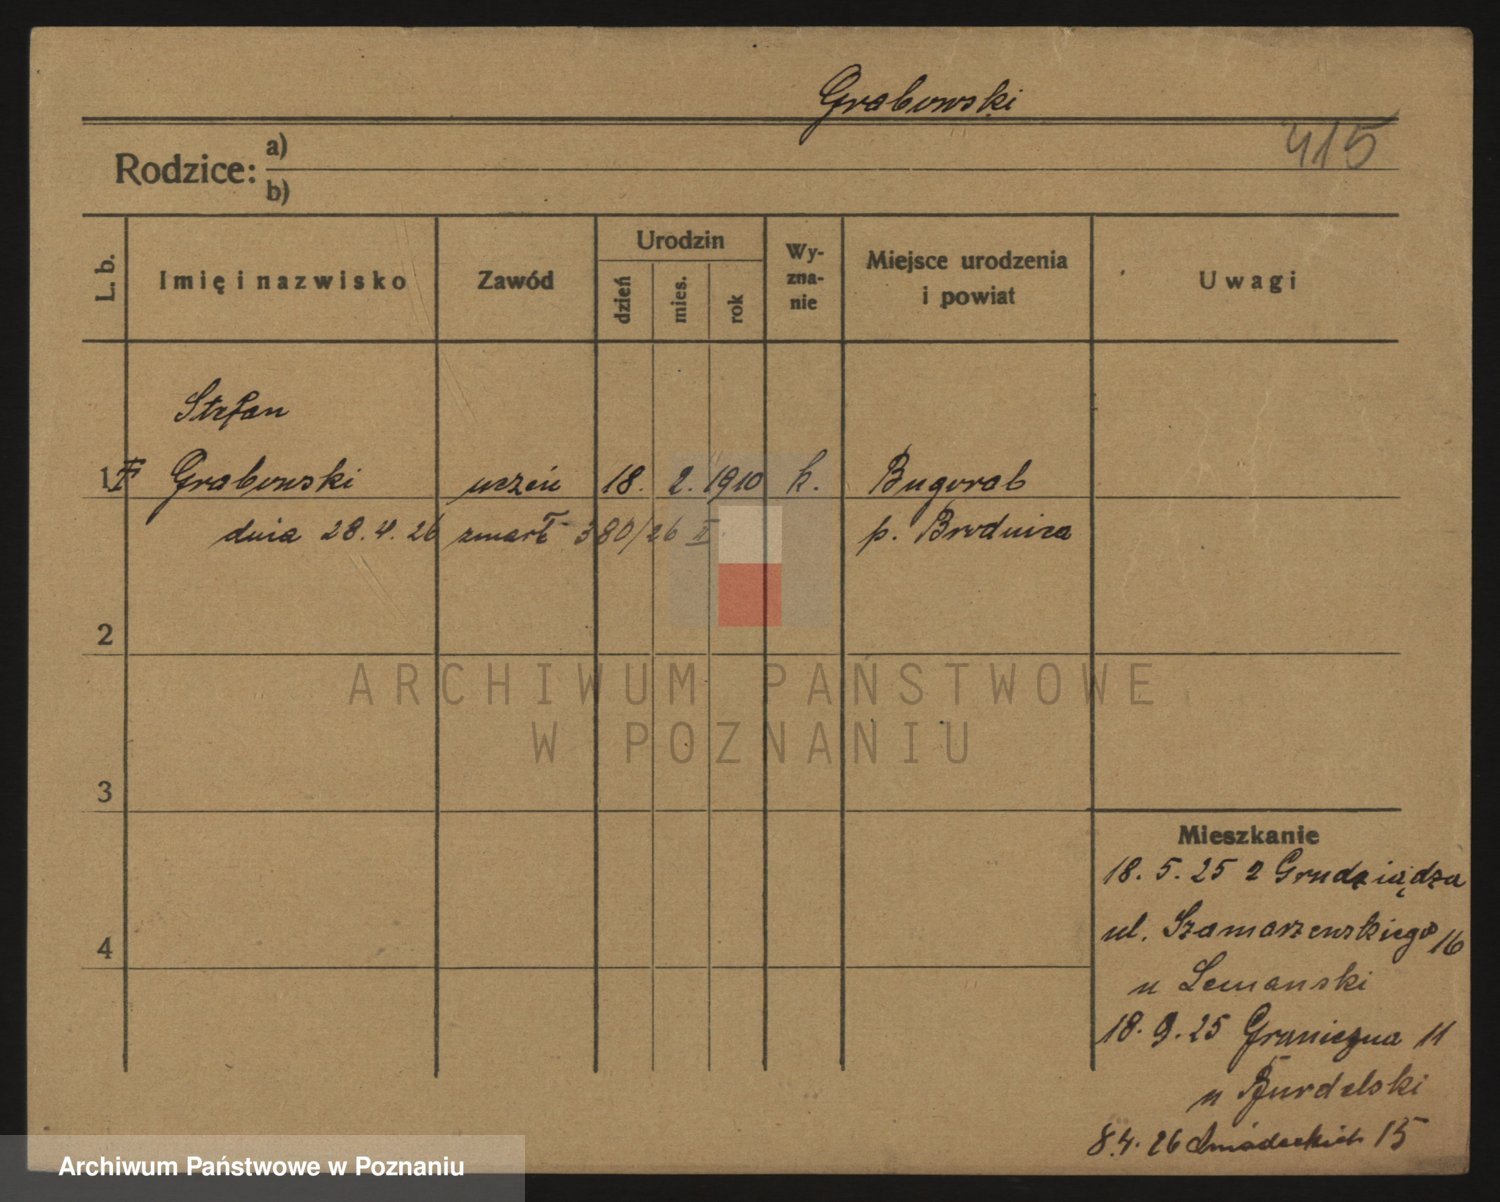 Grabowski
415
Rodzice: a)
b)
L. b.
Imię i nazwisko
Zawód
Urodzin
dzień
mies.
rok
Wy-
zna-
nie
Miejsce urodzenia
i powiat
Uwagi
Stefan
1 Grabowski uczeń 18. 2. 1910 k. Bugoral
dnia 28.4.26 zmarł 380/26 II p. Brodnica
2
ARCHIWUM PAŃSTWOWE
W POZNANIU
3
Mieszkanie
18. 5. 25 z Grudziądza
ul. Szamarzewskiego 16
4
u Lemanski
18. 9. 25 Graniczna 11
u Burdelski
8.4. 26 Śniadeckich 15
Archiwum Państwowe w Poznaniu